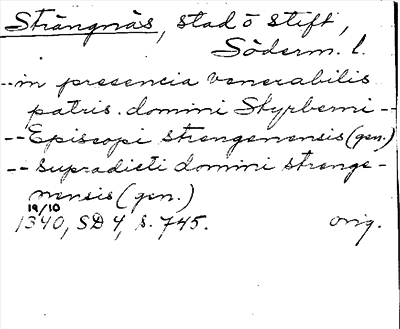 Strängnäs, stad o stift,
Söderm. l.
--in presencia venerabilis
patris. domini Styrbemi --
-- Episcopi strengenensis (gen.)
-- supradicti domini strenge-
nensis (gen.)
19/10
1340, SD 4, s. 745. orig.